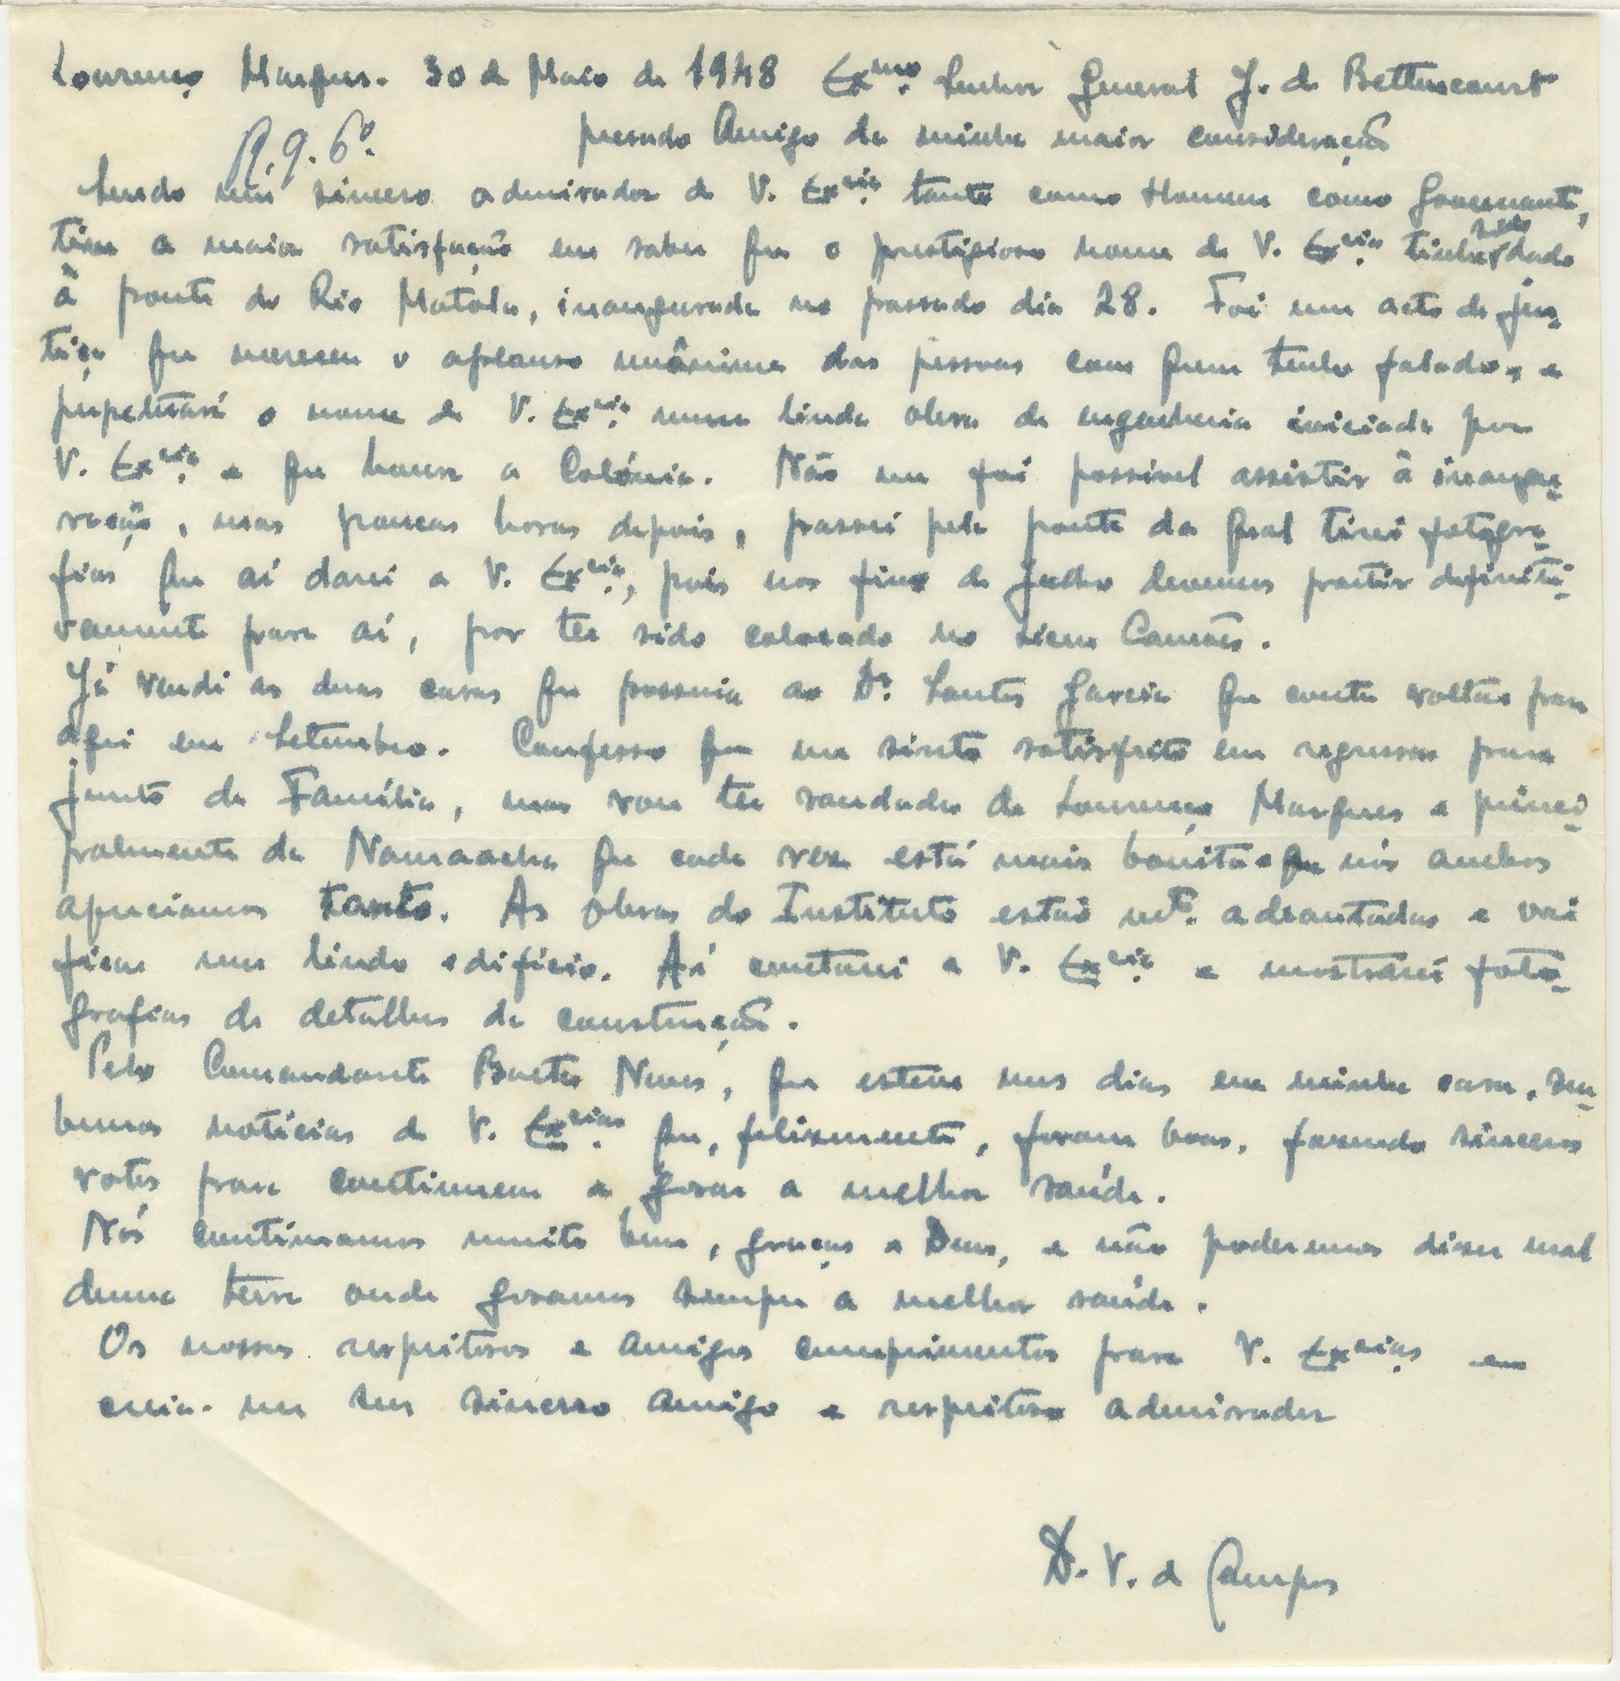 Lourenço Marques. 30 de Maio de 1948 Exmo. Senhor General J. de Bettencourt
prezado Amigo da minha maior consideração
R. 9. 6º.
Sendo um sincero admirador de V. Excia. tanto como Homem como Governante,
tive a maior satisfação em saber que o prestigioso nome de V. Excia. tinha sido dado
à ponte do Rio Matola, inaugurada no passado dia 28. Foi um acto de jus-
tiça que mereceu o aplauso unânime das pessoas com quem tenho falado, e
perpetuará o nome de V. Excia. numa linda obra de engenharia iniciada por
V. Excia. e que honra a Colónia. Não me foi possível assistir à inaugu-
ração, mas poucas horas depois, passei pela ponte da qual tirei fotogra-
fias que aí darei a V. Excia., pois nos fins de Julho devemos partir definiti-
vamente para aí, por ter sido colocado no Liceu Camões.
Já vendi as duas casas que possuia ao Dr. Santos Garcia que conta voltar para
aqui em Setembro. Confesso que me sinto satisfeito em regressar para
junto da Família, mas vou ter saudades de Lourenço Marques e princi-
palmente da Namaacha que cada vez está mais bonita e que nós ambos
apreciamos tanto. As obras do Instituto estão mto. adeantadas e vai
ficar um lindo edifício. Aí contarei a V. Excia. e mostrarei foto-
grafias de detalhes da construção.
Pelo Comandante Nunes, que esteve uns dias em minha casa, sou-
bemos notícias de V. Excias. que, felizmente, foram boas, fazendo sinceros
votos para continuem a gozar a melhor saúde.
Nós continuamos muito bem, graças a Deus, e não poderemos dizer mal
duma terra onde gozamos sempre a melhor saúde.
Os nossos respeitosos e amigos cumprimentos para V. Excias. em
cuia-me seu sincero amigo e respeitoso admirador
D. V. de Campos